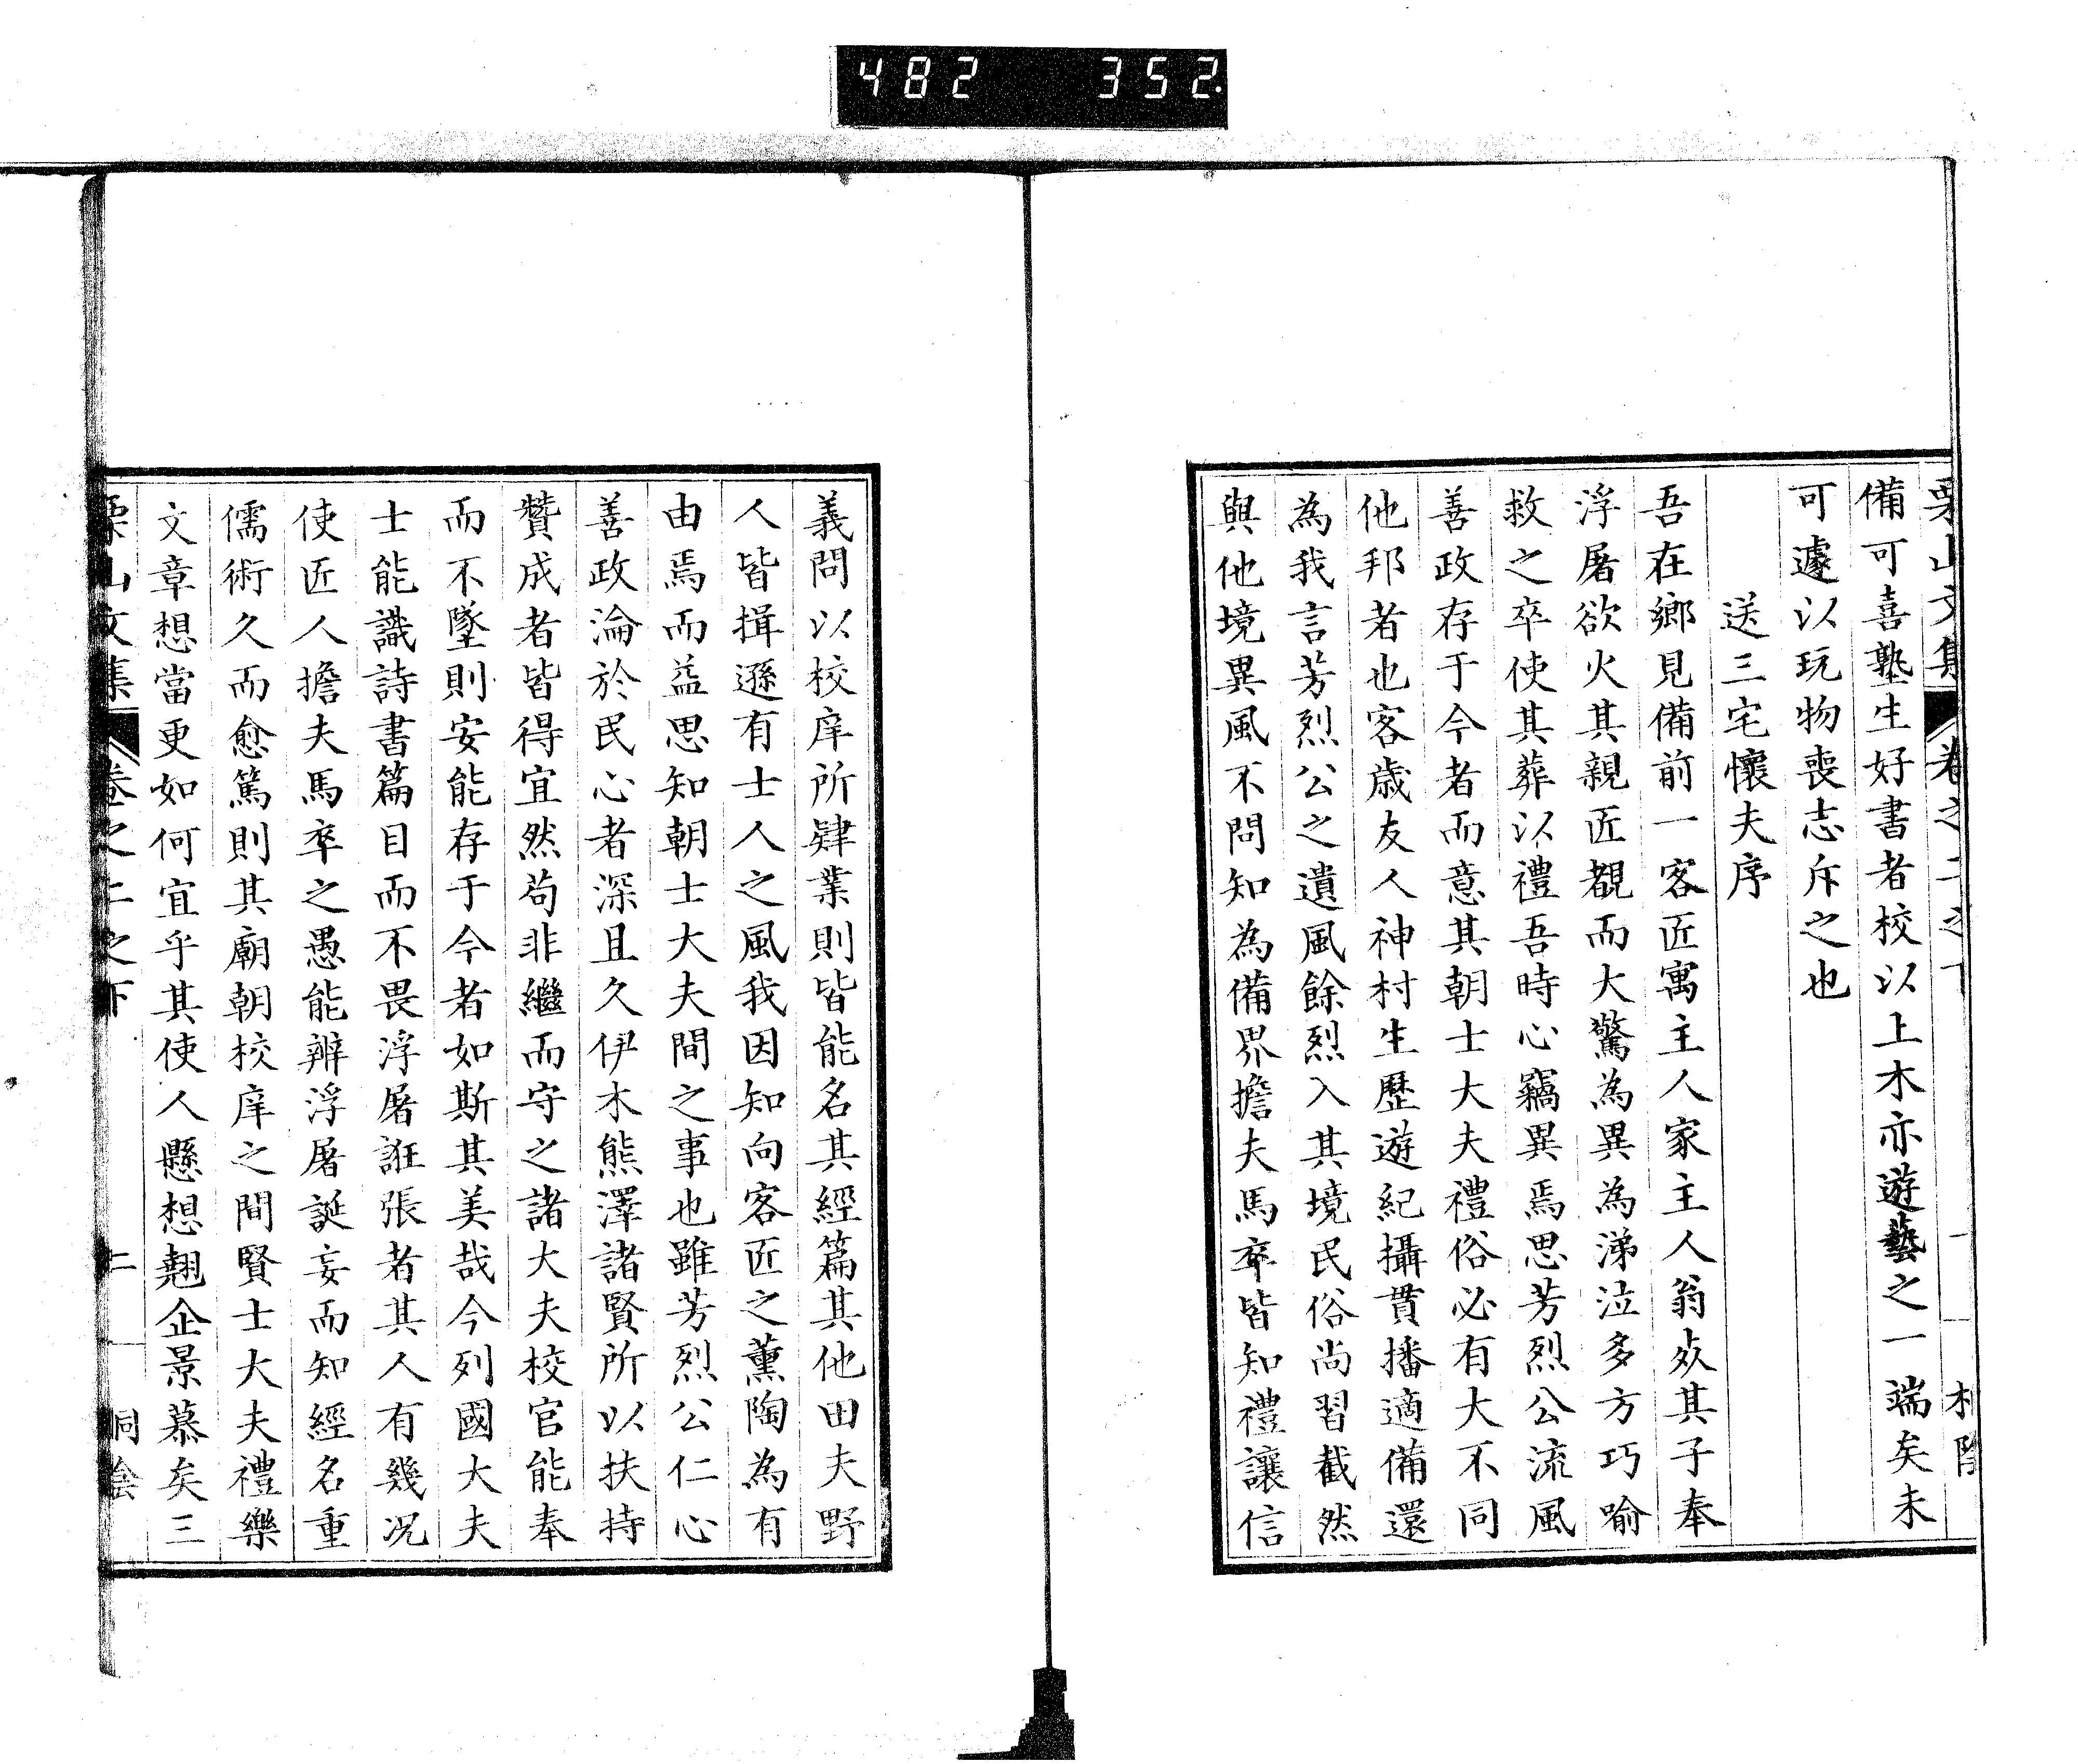 482 352.
備可喜塾生好書者校以上木亦遊藝之一端矣未
可遽以玩物喪志斥之也
送三宅懷夫序
吾在鄉見備前一客匠寓主人家主人翁歿其子奉
浮屠欲火其親匠覩而大驚為異為涕泣多方巧喻
救之卒使其葬以禮吾時心竊異焉思芳烈公流風
善政存于今者而意其朝士大夫禮俗必有大不同
他邦者也客歲友人神村生歷遊紀攝貫播適備還
為我言芳烈公之遺風餘烈入其境民俗尚習截然
與他境異風不問知為備界擔夫馬卒皆知禮讓信
義問以校庠所肄業則皆能名其經篇其他田夫野
人皆揖遜有士人之風我因知向客匠之薰陶為有
由焉而益思知朝士大夫間之事也雖芳烈公仁心
善政淪於民心者深且久伊木熊澤諸賢所以扶持
贊成者皆得宜然苟非繼而守之諸大夫校官能奉
而不墜則安能存于今者如斯其美哉今列國大夫
士能識詩書篇目而不畏浮屠誑張者其人有幾况
使匠人擔夫馬卒之愚能辨浮屠誕妄而知經名重
儒術久而愈篤則其廟朝校庠之間賢士大夫禮樂
文章想當更如何宜乎其使人懸想翹企景慕矣三
栗山文集 卷之二之下